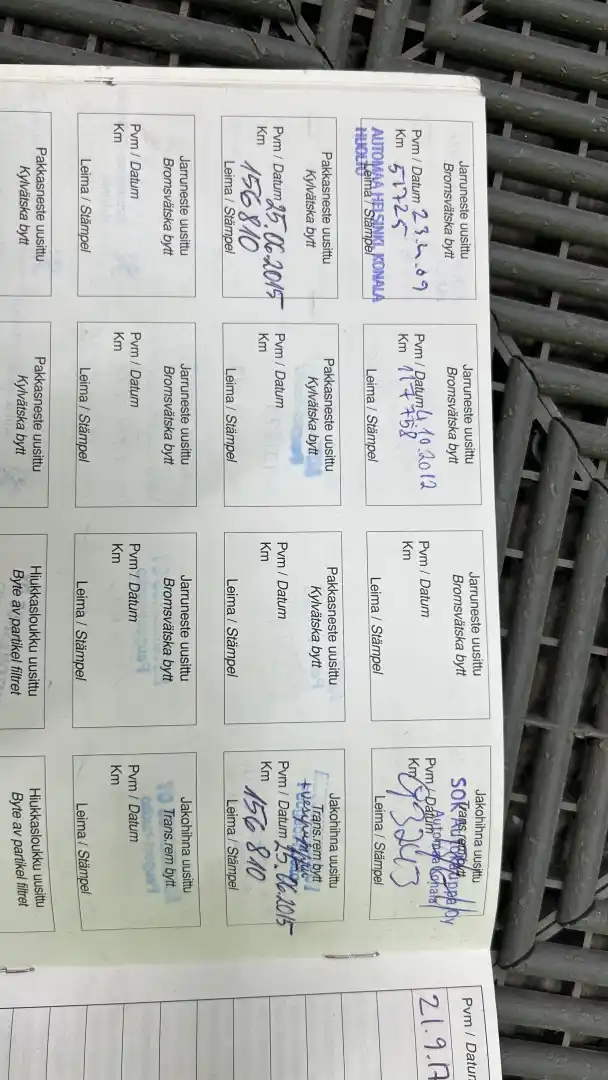 Jarruneste uusittu
Bromsvätska bytt
Pvm / Datum 23.4.09
Km 51725
Leima / Stämpel
AUTOMAA HELSINKI, KONALA
HUOLTO
Jarruneste uusittu
Bromsvätska bytt
Pvm / Datum 4.10.2012
Km 117758
Leima / Stämpel
Jarruneste uusittu
Bromsvätska bytt
Pvm / Datum
Km
Leima / Stämpel
Jakohihna uusittu
SOK
Pvm / Datum
Km 93243
Leima / Stämpel
Pakkasneste uusittu
Kylvätska bytt
Pvm / Datum 25.06.2015
Km 156810
Leima / Stämpel
Pakkasneste uusittu
Kylvätska bytt
Pvm / Datum
Km
Leima / Stämpel
Pakkasneste uusittu
Kylvätska bytt
Pvm / Datum
Km
Leima / Stämpel
Jakohihna uusittu
Trans.rem bytt
Pvm / Datum 25.06.2015
Km 156810
Leima / Stämpel
Jarruneste uusittu
Bromsvätska bytt
Pvm / Datum
Km
Leima / Stämpel
Jarruneste uusittu
Bromsvätska bytt
Pvm / Datum
Km
Leima / Stämpel
Jarruneste uusittu
Bromsvätska bytt
Pvm / Datum
Km
Leima / Stämpel
Jakohihna uusittu
Trans.rem bytt
Pvm / Datum
Km
Leima / Stämpel
Pakkasneste uusittu
Kylvätska bytt
Pakkasneste uusittu
Kylvätska bytt
Hiukkasloukku uusittu
Byte av partikel filtret
Hiukkasloukku uusittu
Byte av partikel filtret
Pvm / Datum
21.9.17